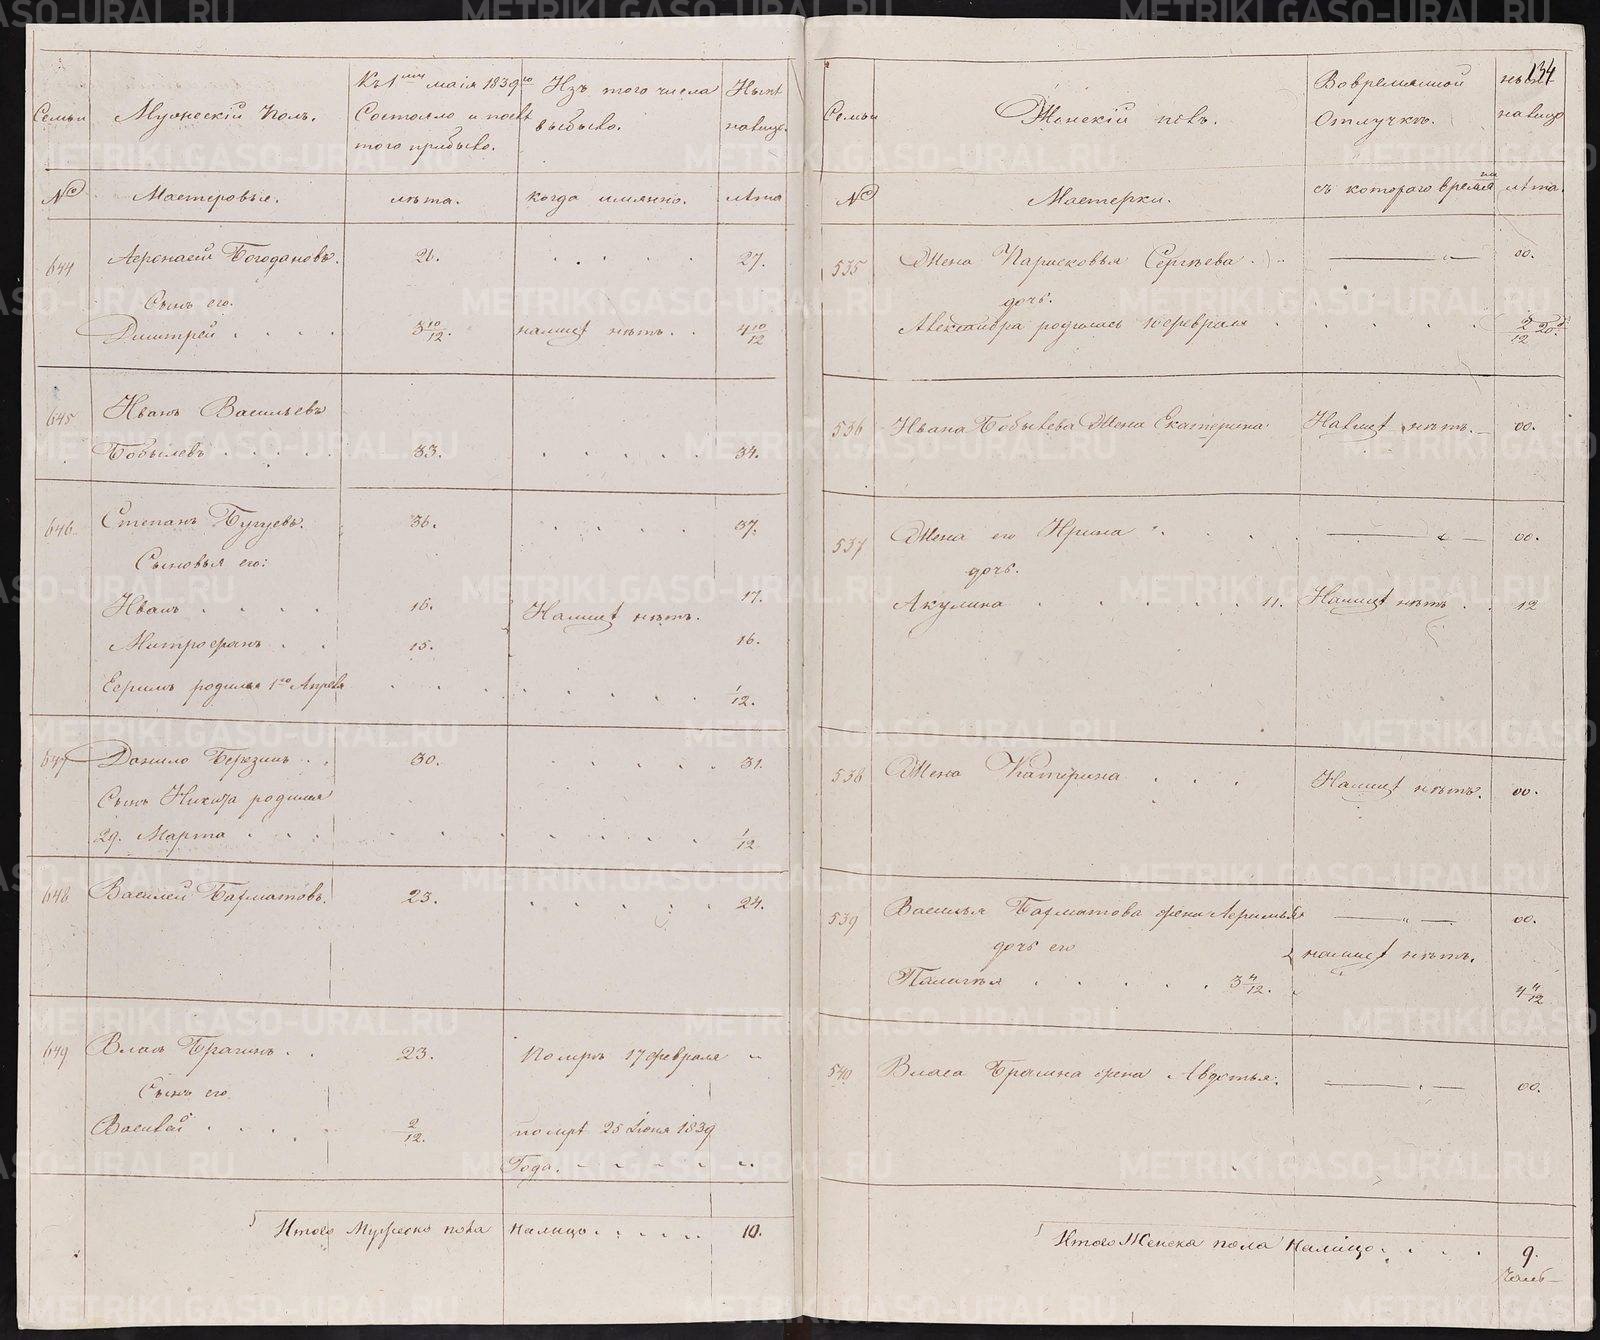 134
Семьи
Мужескій Полъ.
Къ 1 маія 1839го
Состояло и послѣ
того прибыло.
Изъ того числа
выбыло.
Нынѣ
налицо.
№
Мастеровыя.
лѣта.
когда имянно.
лѣта
644
Богдановъ.
26.
27.
Сынъ его.
Дмитрей
3 10/12.
налицѣ нѣтъ.
4 10/12
645
Иванъ Васильевъ
Бобылевъ
33.
34.
646
Степанъ
36.
37.
Сыновья его:
Иванъ
16.
Налицѣ нѣтъ.
17.
Митрофанъ
15.
16.
Ефимъ родился 1го Апреля
1/12.
647
Данило Березинъ
30.
31.
Сынъ Никита родился
29. Марта
1/12
648
Василей Барматовъ.
23.
24.
649
Власъ Брагинъ
23.
Померъ 17 февраля
Сынъ его
Василей
2/12.
помре 25 Іюня 1839
Года.
Итого Мужеска пола налицо
10.
Семьи
Женскій полъ.
Вовременной
Отлучкѣ.
нынѣ
налицо
№
Мастерки.
съ котораго время
лѣта.
535
Жена Парасковья Сергѣева
00.
дочь.
Александра родилась 10 февраля
2/12
536
Ивана Бобылева Жена Екатерина
Налицѣ нѣтъ.
00.
537
Жена его Ирина
00.
дочь.
Акулина 11.
Налицѣ нѣтъ
12
538
Жена Катерина
Налицѣ нѣтъ.
00.
539
Василья Барматова жена
00.
дочь его
налицѣ нѣтъ.
Палагѣя 3 4/12.
4 4/12
540
Власа Брагина жена Авдотья.
00.
Итого Женска пола налицо
9.